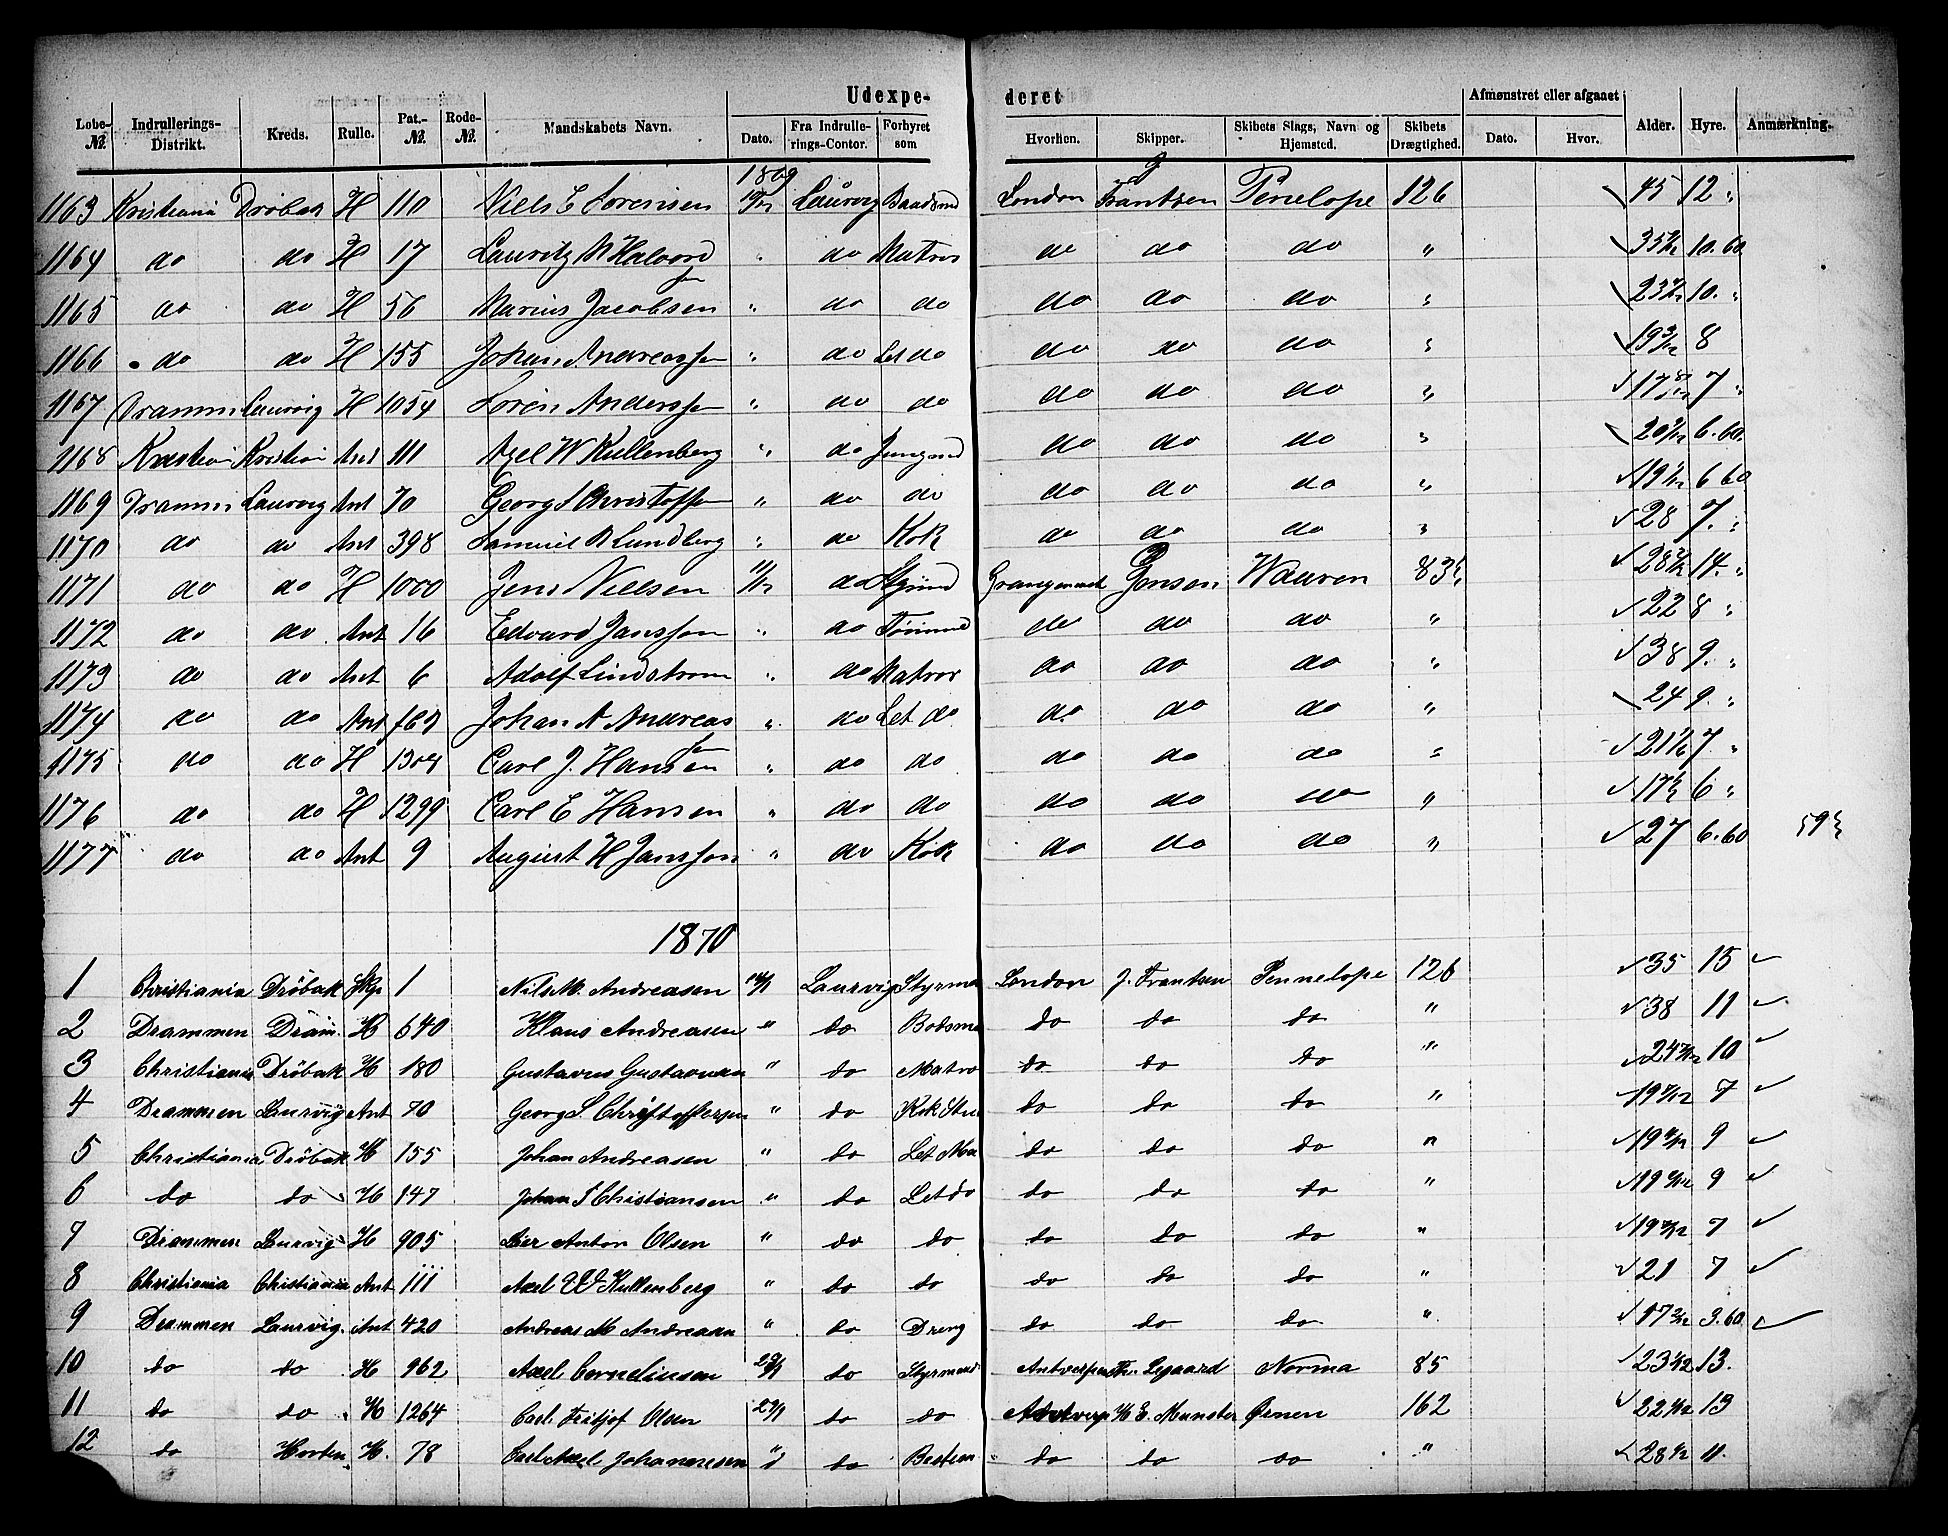 Udexpe- deret
Løbe-№ Indrullerings-Distrikt. Kreds. Rulle. Pat.-№ Rode-№ Mandskabets Navn. Dato. Fra Indrullerings-Contor. Forhyret som Hvorhen. Skipper. Skibets Slags, Navn og Hjemsted. Skibets Drægtighed. Afmønstret eller afgaaet Dato. Hvor. Alder. Hyre. Anmærkning.
1869
1163 Kristiania Drøbak H 110 Niels E Sørensen Laurvig Baadsmd London J Frantzen Penelope 126 45 12 "
1164 do do H 17 Lauritz M Halvordsen " do Matros do do do " 35 10.60
1165 do do H 56 Marius Jacobsen " do do do do do " 23 10. "
1166 do do H 155 Johan Andreassen " do Let do do do do " 19 3/12 8
1167 Drammen Laurvig H 1054 Søren Anderssen " do do do do do " 17 7 "
1168 Kristian Kristian Ant 111 Axel W Kullenberg " do Jungmd do do do " 20 6.60
1169 Drammen Laurvig Ant 70 Georg S Christoffsen " do do do do do " 19 6 60
1170 do do Ant 398 Samuel B Lundberg " do Kok do do do " 28 7. "
1171 do do H 1000 Jens Nielsen do Grangemouth Jensen 83½ 28 14. "
1172 do do Ant 16 Edvard Jansson " do Tømmd do do do " 22 8 "
1173 do do Ant 6 Adolf Lindstrom " do Matros do do do " 38 9. "
1174 do do Ant Johan A Andreassen " do Let do do do do " 24 9. "
1175 do do H Carl J. Hansen " do do do do do " 21 7 "
1176 do do H 1299 Carl E Hansen " do do do do do " 17½ 6 "
1177 do do Ant 9 August H Jansson " do Kok do do do " 27 6.60 59½
1870
1 Christiania Drøbak Skp 1 Nils M. Andreasen 14/1 Laurvig Styrma London J. Frantsen Pennelope 126 35 15
2 Drammen Dram. H 640 Klaus Andreasen " do Bodsma do do do " 38 11
3 Christiania Drøbak H 180 Gustavus Gustavsen " do Matro do do do " 24 10
4 Drammen Laurvig Ant 70 Georg S. Christoffersen " do Kok Stu do do do " 19 7
5 Christiania Drøbak H 155 Johan Andreasen " do Let Ma do do do " 19 9
6 do do H 147 Johan S Christiansen " do Let do do do do " 19 9
7 Drammen Laurvig H 905 Anton Olsen " do do do do do " 19 7
8 Christiania Christiania Ant 111 Axel W Kullenberg " do do do do do " 21 7
9 Drammen Laurvig. Ant 420 Andreas M Andreasen " do Dreng do do do " 17 3.60
10 do do H 962 Axel Corneliusen do Styrmand Antverpen Norma 85 23 13.
11 do do H 1264 Carl Fritjof Olsen do do Antverp H E. Munster Ørnen 162 22 13
12 do Horten H. 78 Carl Axel Johannesen do Bestem do do do " 28 11.